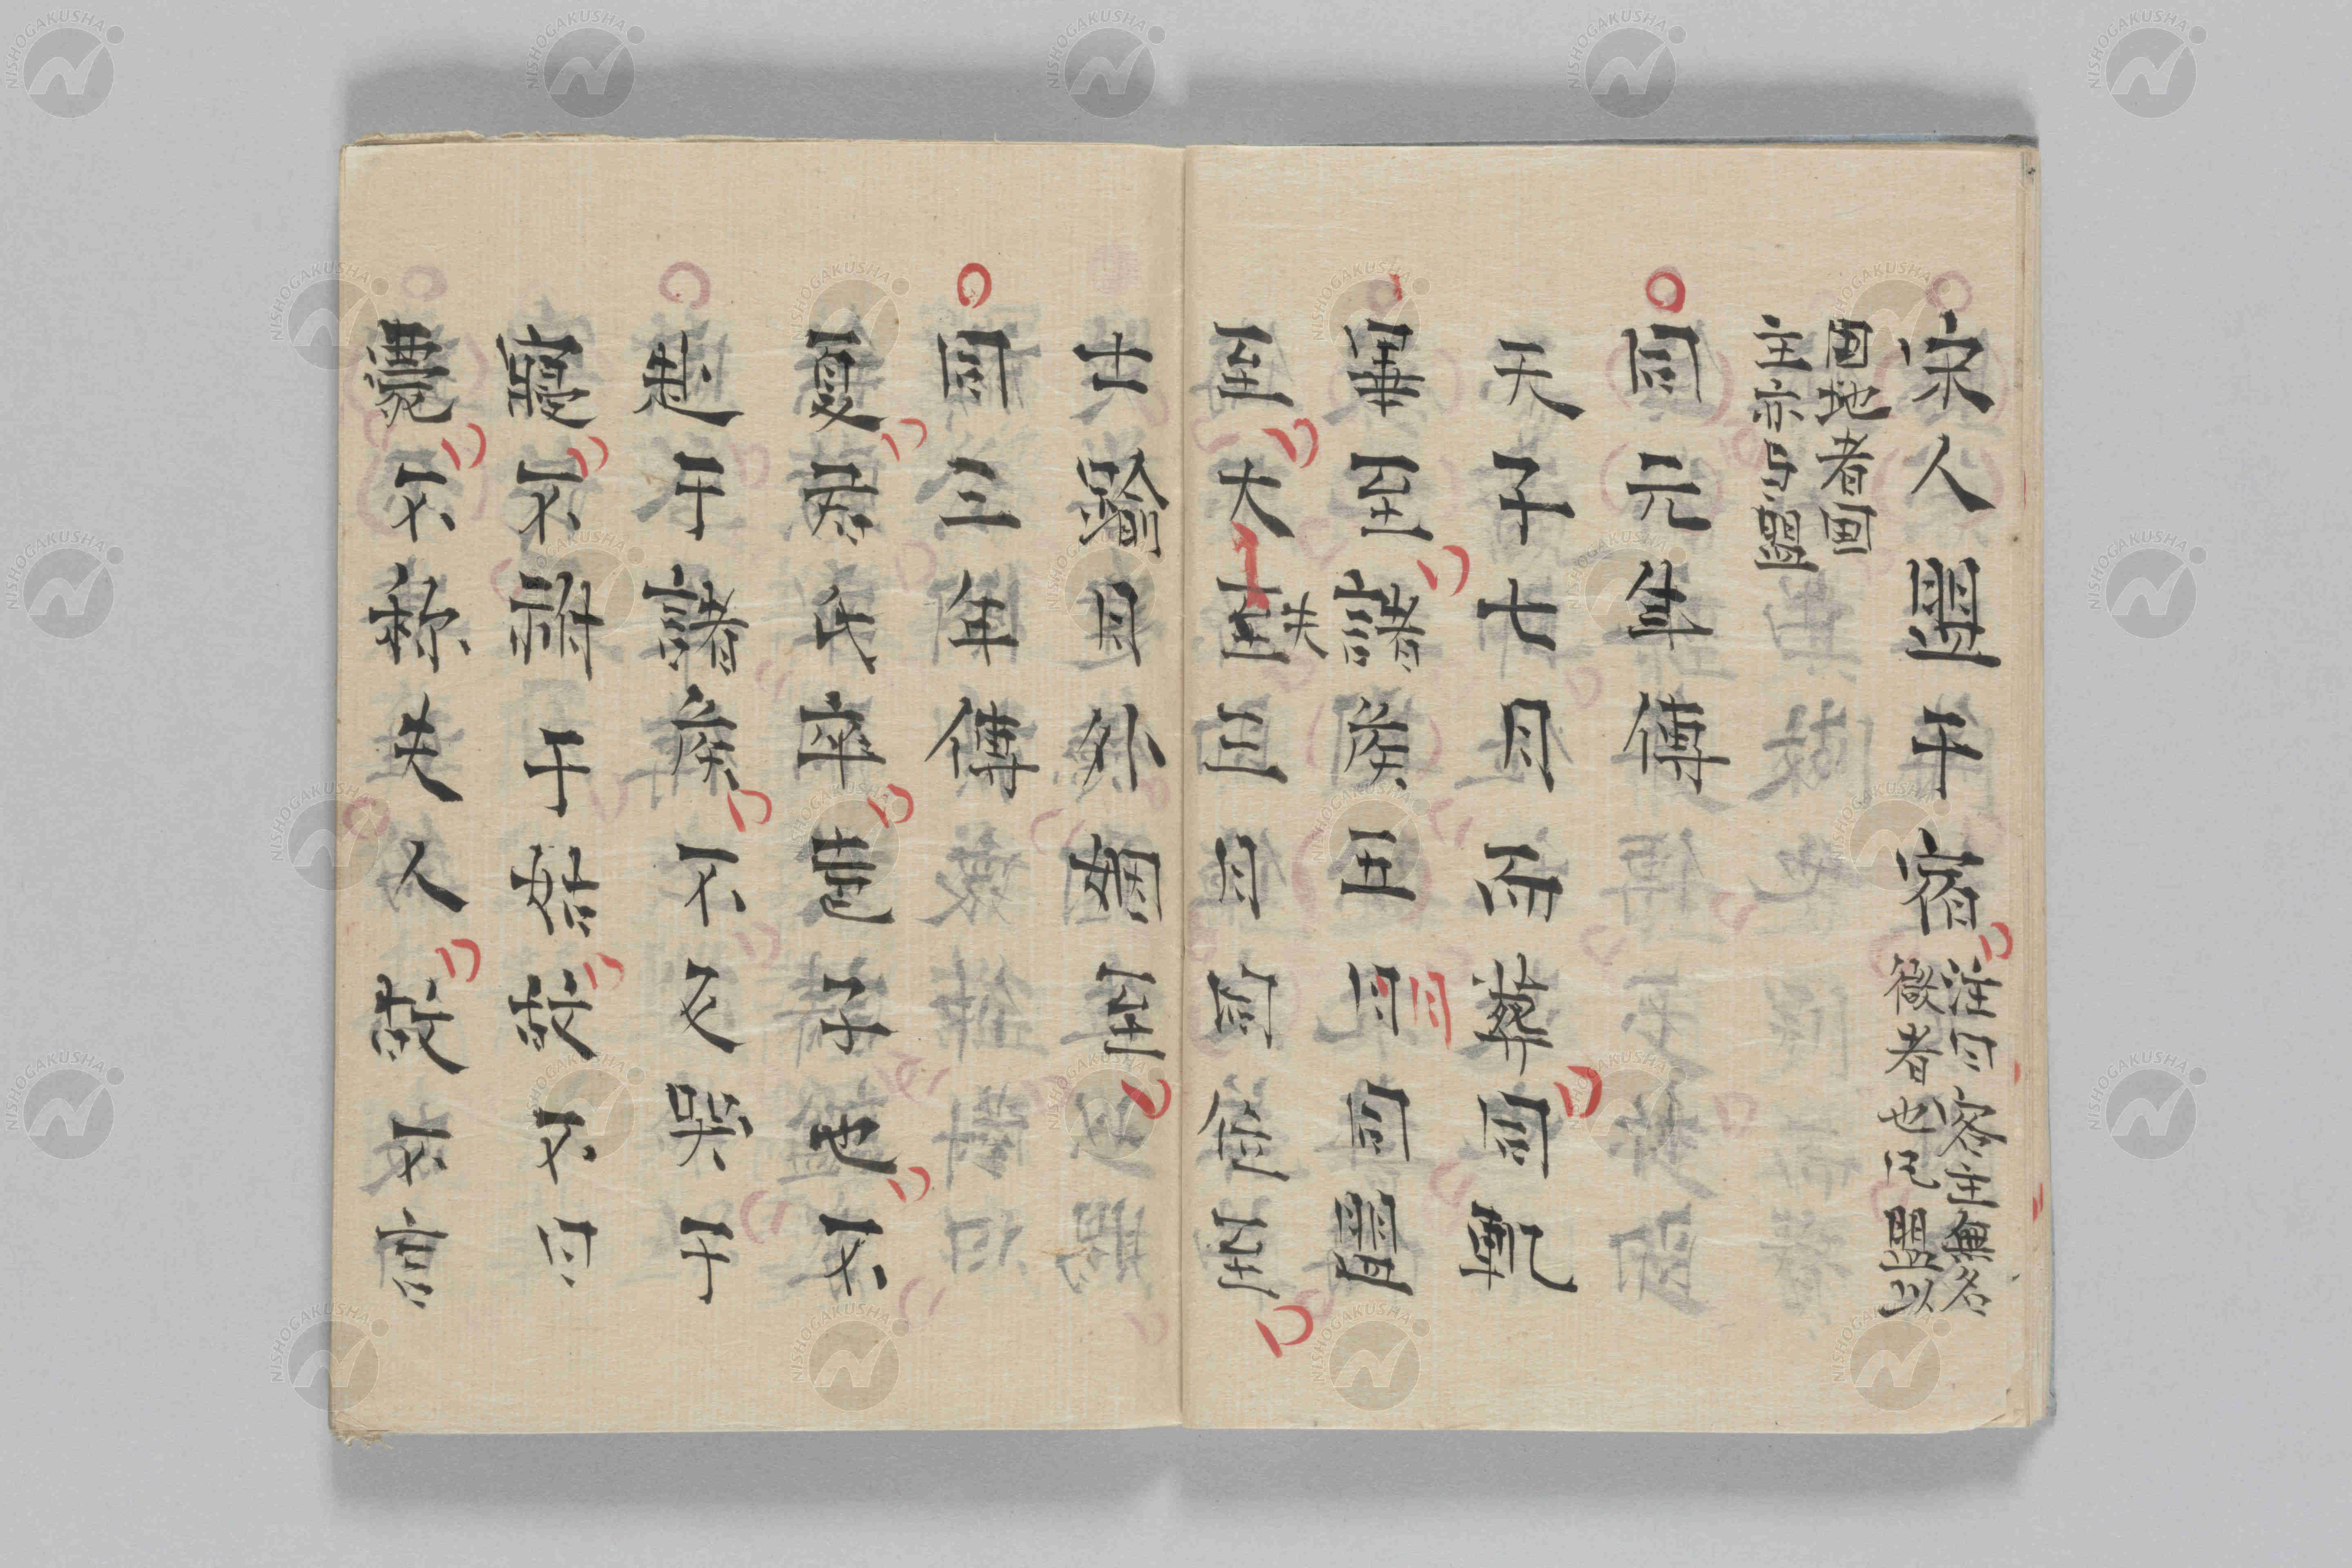 宋人盟于宿 注曰客主無名
微者也凡盟以
国地者国
主亦与盟
同元年傳
天子七月而葬同軌
畢至諸侯五月同盟
至大夫三月同位至
士踰月外姻至
同三年傳
夏君氏卒聲子也不
赴于諸侯不反哭于
寢不祔于姑故不曰
薨不称夫人故不言
NISHOGAKUSHA